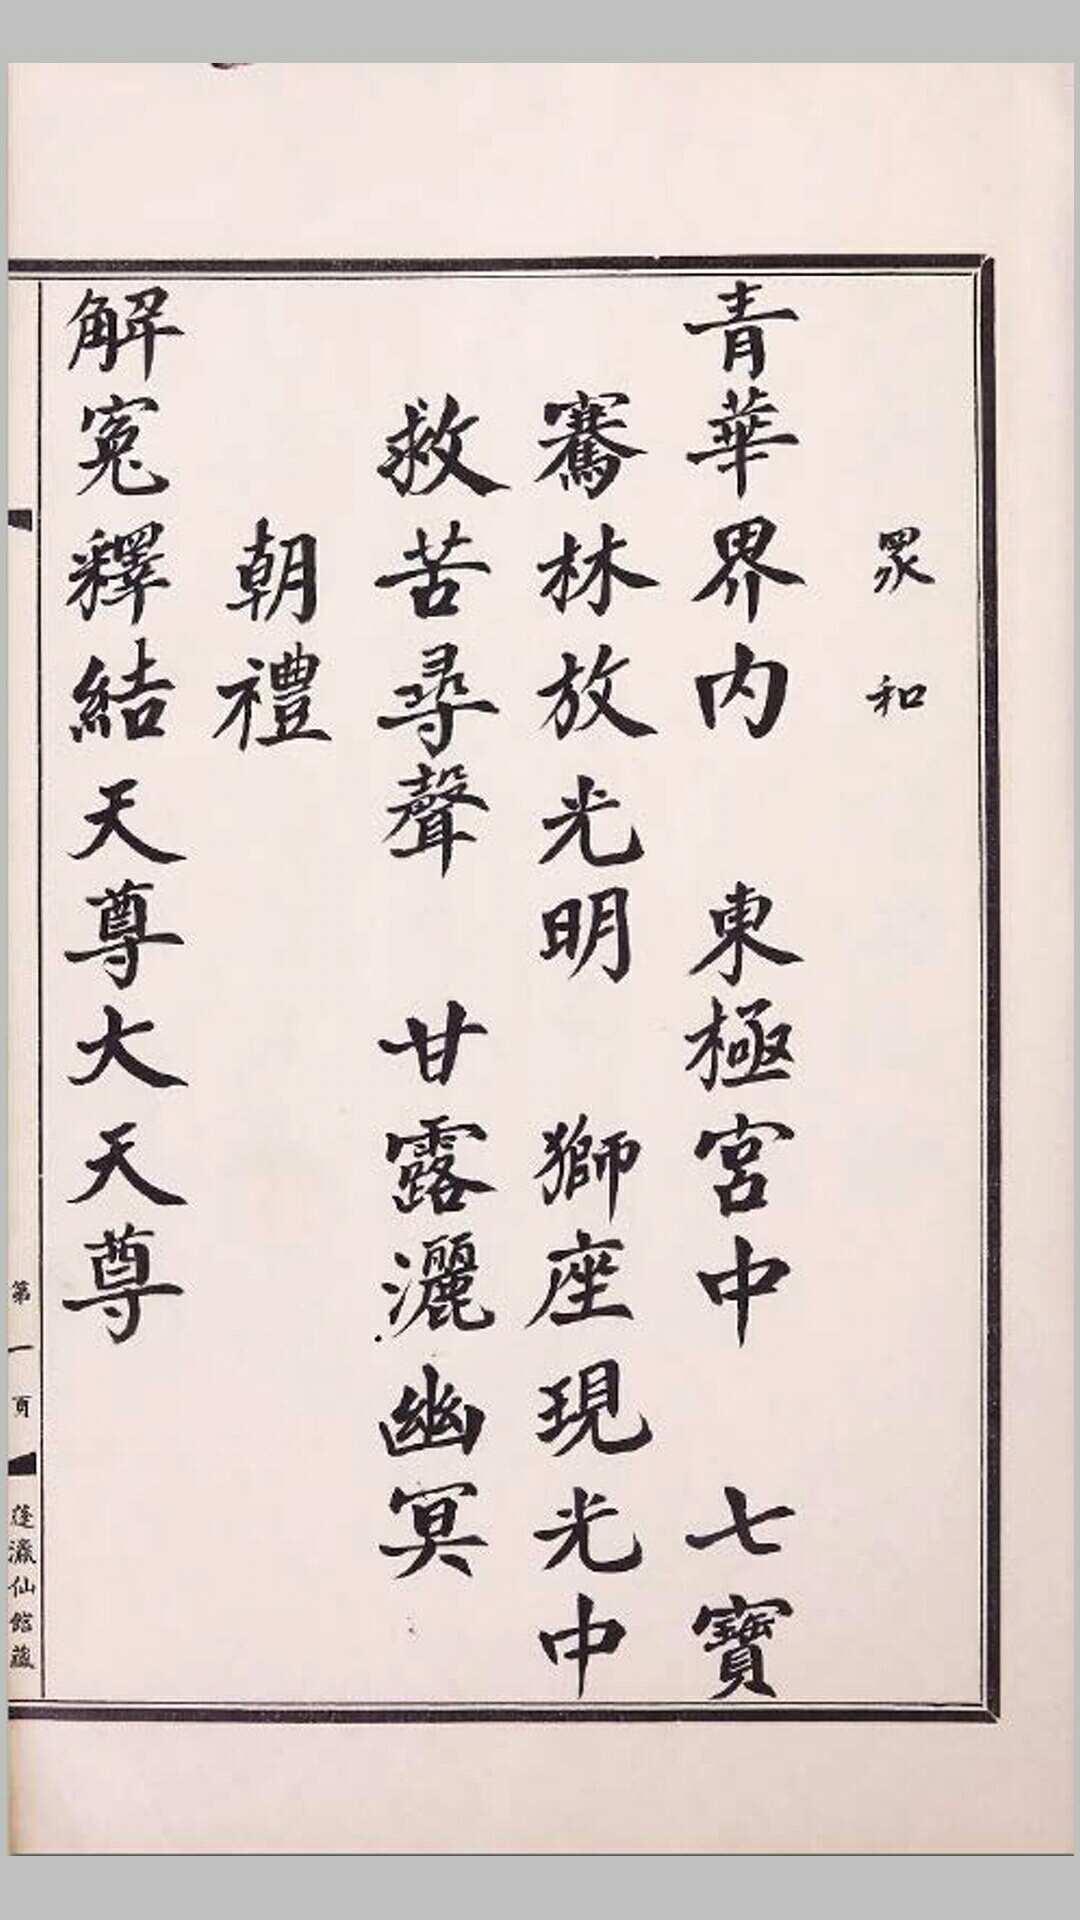 眾和
青華界內　東極宮中　七寶
騫林放光明　獅座現光中
救苦尋聲　甘露灑幽冥
朝禮
解冤釋結天尊大天尊
第一頁
蓬瀛仙館蔵